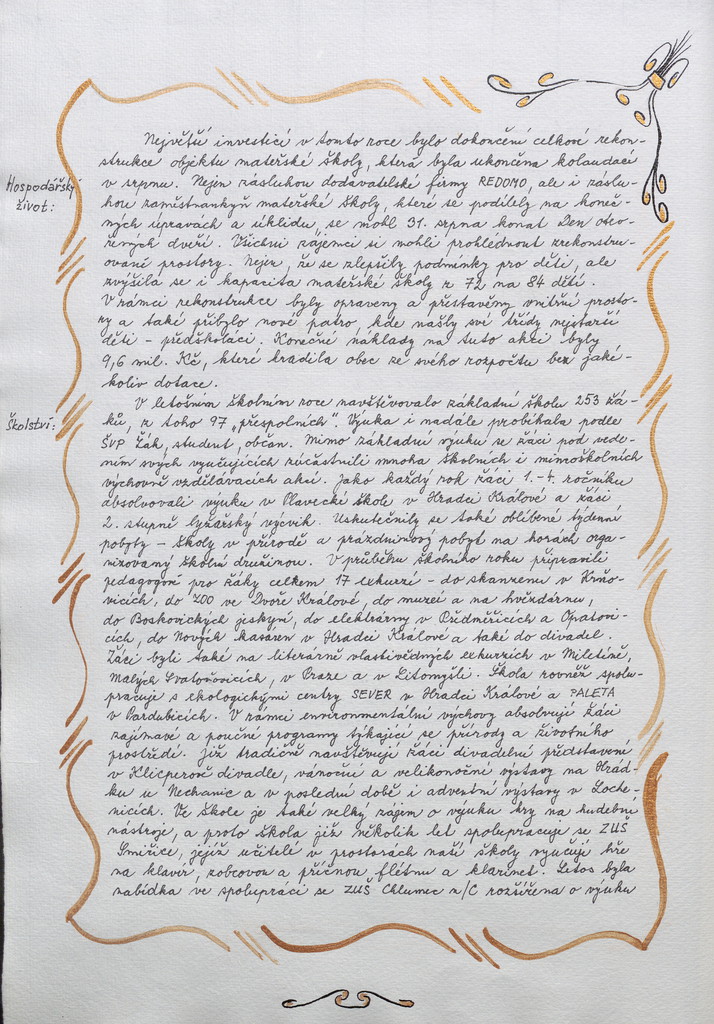 Největší investicí v tomto roce bylo dokončení celkové rekon-
strukce objektu mateřské školy, která byla ukončena kolaudací
Hospodářský
život:
v srpnu. Nejen zásluhou dodavatelské firmy REDOMO, ale i záslu-
hou zaměstnankyň mateřské školy, které se podílely na koneč-
ných úpravách a úklidu, se mohl 31. srpna konat Den otev-
řených dveří. Všichni zájemci si mohli prohlédnout zrekonstru-
ované prostory. Nejen, že se zlepšily podmínky pro děti, ale
zvýšila se i kapacita mateřské školy z 72 na 84 dětí.
V rámci rekonstrukce byly opraveny a přestavěny vnitřní prosto-
ry a také přibylo nové patro, kde našly své třídy nejstarší
děti - předškoláci. Konečné náklady na tuto akci byly
9,6 mil. Kč, které hradila obec ze svého rozpočtu bez jaké-
koliv dotace.
Školství:
V letošním školním roce navštěvovalo základní školu 253 žá-
ků, z toho 97 „přespolních". Výuka i nadále probíhala podle
ŠVP Žák, student, občan. Mimo základní výuku se žáci pod vede-
ním svých vyučujících zúčastnili mnoha školních i mimoškolních
výchovně vzdělávacích akcí. Jako každý rok žáci 1.-4. ročníku
absolvovali výuku v Plavecké škole v Hradci Králové a žáci
2. stupně lyžařský výcvik. Uskutečnily se také oblíbené týdenní
pobyty - školy v přírodě a prázdninový pobyt na horách orga-
nizovaný školní družinou. V průběhu školního roku připravili
pedagogové pro žáky celkem 17 exkurzí - do skanzenu v Krňo-
vicích, do ZOO ve Dvoře Králové, do muzeí a na hvězdárnu,
do Boskovických jeskyní, do elektrárny v Předměřicích a Opatovi-
cích, do Nových kasáren v Hradci Králové a také do divadel.
Žáci byli také na literárně vlastivědných exkurzích v Miletíně,
Malých Svatoňovicích, v Praze a v Litomyšli. Škola rovněž spolu-
pracuje s ekologickými centry SEVER v Hradci Králové a PALETA
v Pardubicích. V rámci environmentální výchovy absolvují žáci
zajímavé a poučné programy týkající se přírody a životního
prostředí. Již tradičně navštěvují žáci divadelní představení
v Klicperově divadle, vánoční a velikonoční výstavy na Hrád-
ku u Nechanic a v poslední době i adventní výstavy v Loche-
nicích. Ve škole je také velký zájem o výuku hry na hudební
nástroje, a proto škola již několik let spolupracuje se ZUŠ
Smiřice, jejíž učitelé v prostorách naší školy vyučují hře
na klavír, zobcovou a příčnou flétnu a klarinet. Letos byla
nabídka ve spolupráci se ZUŠ Chlumec n/C rozšířena o výuku